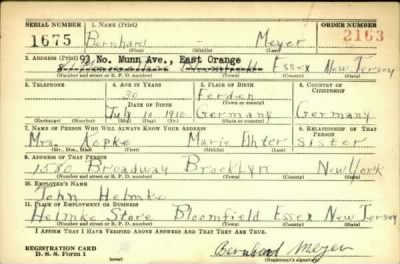 SERIAL NUMBER 1. NAME (Print) ORDER NUMBER
1675 Bernhard Meyer 2163
(First) (Middle) (Last)
2. ADDRESS (Print) 93 No. Munn Ave., East Orange
Bloomfield Essex New Jersey
(Number and street or R. F. D. number) (Town) (County) (State)
3. TELEPHONE 4. AGE IN YEARS 5. PLACE OF BIRTH 6. COUNTRY OF CITIZENSHIP
30 Ferden
DATE OF BIRTH (Town or county)
July 10 1910 Germany Germany
(Exchange) (Number) (Mo.) (Day) (Yr.) (State or country)
7. NAME OF PERSON WHO WILL ALWAYS KNOW YOUR ADDRESS 8. RELATIONSHIP OF THAT PERSON
Mrs. Kopke Marie Sister
(Mr., Mrs., Miss) (First) (Middle) (Last)
9. ADDRESS OF THAT PERSON
1580 Broadway Brooklyn New York
(Number and street or R. F. D. number) (Town) (County) (State)
10. EMPLOYER'S NAME
John Helmke
11. PLACE OF EMPLOYMENT OR BUSINESS
Helmke Store Bloomfield Essex New Jersey
(Number and street or R. F. D. number) (Town) (County) (State)
I AFFIRM THAT I HAVE VERIFIED ABOVE ANSWERS AND THAT THEY ARE TRUE.
REGISTRATION CARD
D. S. S. Form 1
Bernhard Meyer
(Registrant's signature)